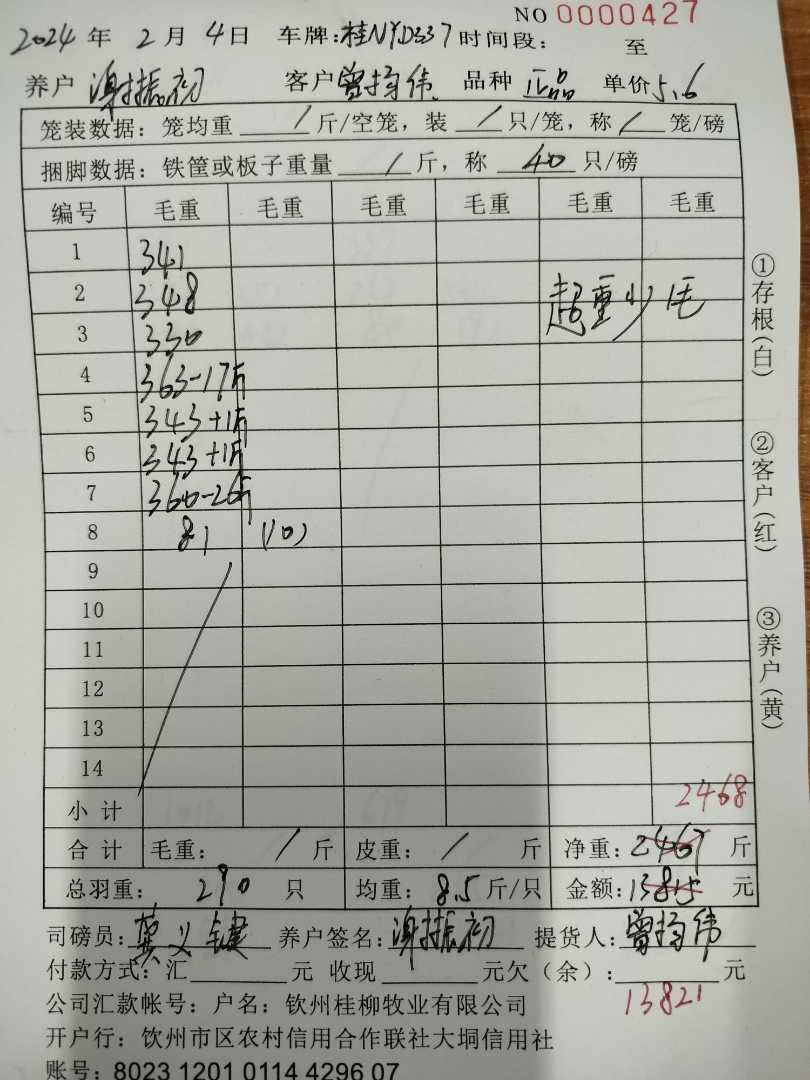 NO 0000427
2024年2月4日 车牌:桂NYD337时间段: 至
养户 谢振初 客户曾扬伟 品种 正品 单价5.6
笼装数据:笼均重 / 斤/空笼,装 / 只/笼,称 / 笼/磅
捆脚数据:铁筐或板子重量 / 斤,称 40 只/磅
编号 毛重 毛重 毛重 毛重 毛重 毛重
1 341
2 348 超重少毛
3 330
4 363-17斤
5 343+1斤
6 343+1斤
7 360-26斤
8 81 (10)
9
10
11
12
13
14
小计 2468
合计 毛重: / 斤 皮重: / 斤 净重:2467 斤
总羽重: 290 只 均重:8.5斤/只 金额:13815 元
司磅员: 义键 养户签名:谢振初 提货人:曾扬伟
付款方式:汇 元 收现 元欠(余): 元
13821
公司汇款帐号:户名:钦州桂柳牧业有限公司
开户行:钦州市区农村信用合作联社大垌信用社
账号:8023 1201 0114 4296 07
①存根(白)
②客户(红)
③养户(黄)